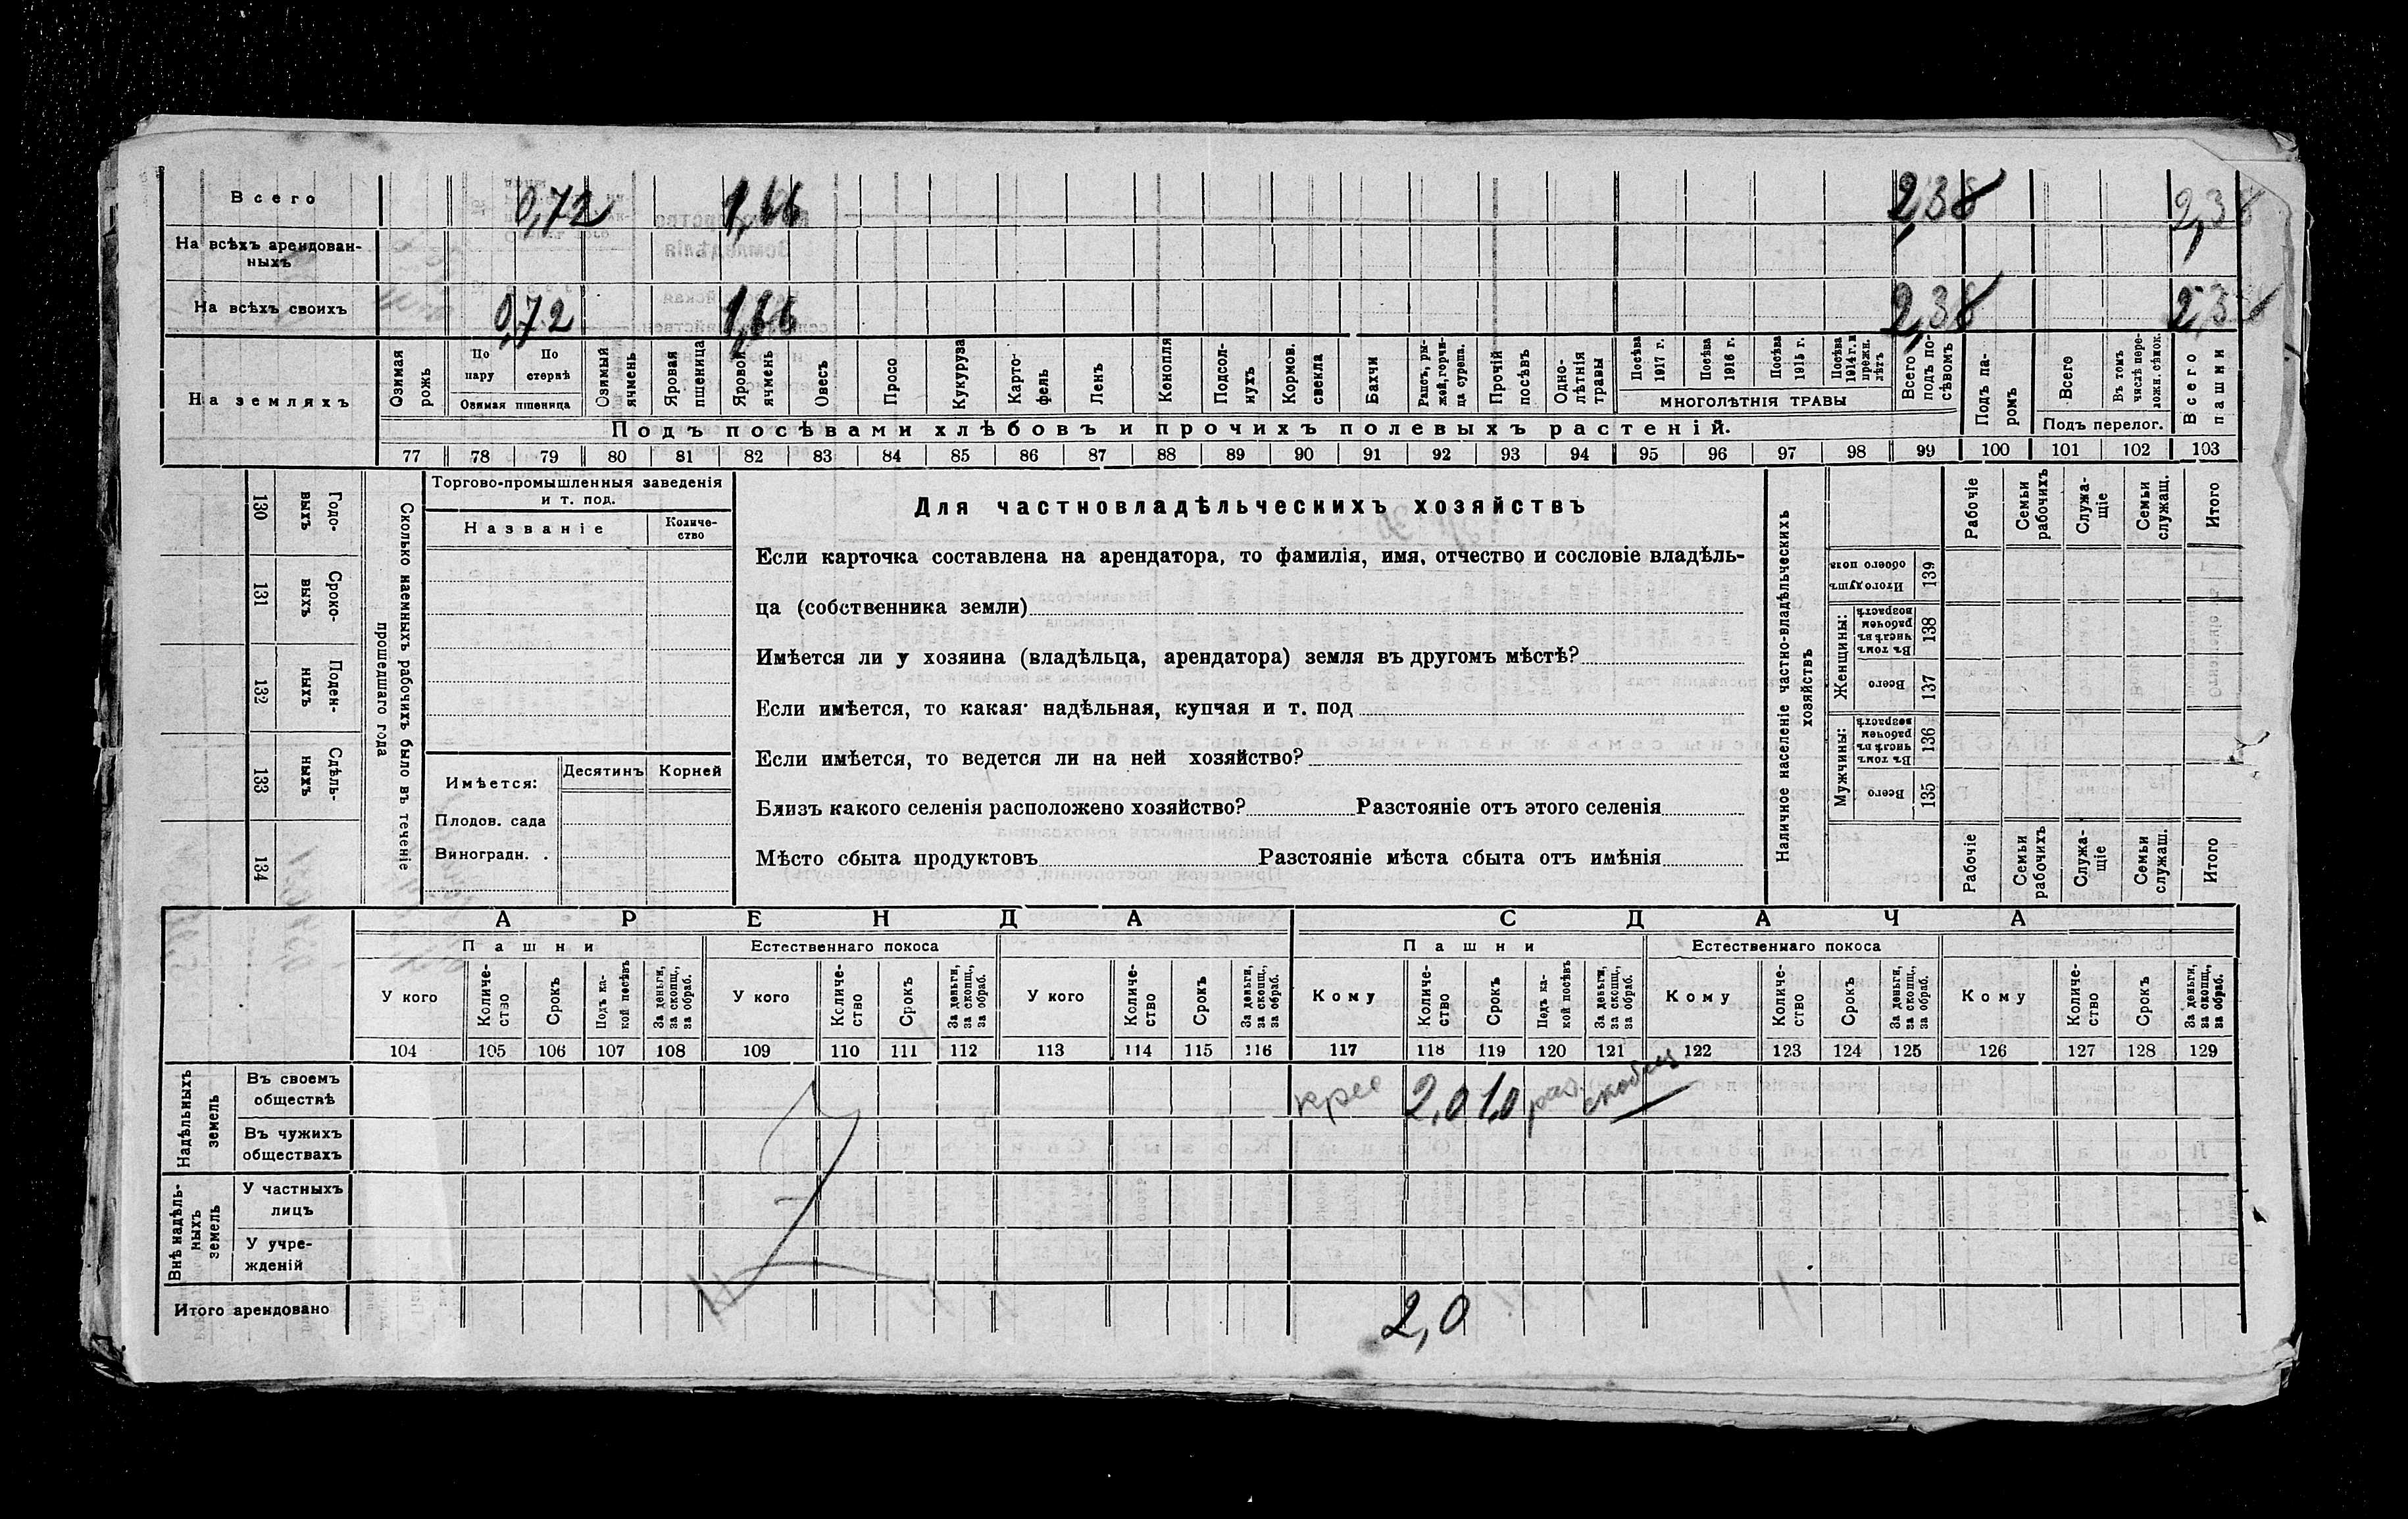 Всего 0,72 1,66 2,38 2,38
На всѣхъ арендован-
ныхъ
На всѣхъ своихъ 0,72 1,66 2,38 2,38
На земляхъ
Озимая рожь
По пару
По стернѣ
Озимая пшеница
Озимый ячмень
Яровая пшеница
Яровой ячмень
Овесъ
Просо
Кукуруза
Карто-
фель
Ленъ
Конопля
Подсол-
нухъ
Кормов. свекла
Бахчи
Рапсъ, ры-
жей, горчи-
ца сурепа.
Прочій посѣвъ
Одно-
лѣтнія травы
Посѣва 1917 г.
Посѣва 1916 г.
Посѣва 1915 г.
Посѣва 1914 г. и прежн. лѣтъ
МНОГОЛѢТНІЯ ТРАВЫ
Всего подъ по-
сѣвомъ
Подъ па-
ромъ
Всего
Въ томъ числѣ пере-
ложн. сѣнок.
Подъ перелог.
Всего пашни
Подъ посѣвами хлѣбовъ и прочихъ полевыхъ растеній.
77 78 79 80 81 82 83 84 85 86 87 88 89 90 91 92 93 94 95 96 97 98 99 100 101 102 103
130 Годо-
выхъ
131 Сроко-
выхъ
132 Поден-
ныхъ
133 Сдѣль-
ныхъ
134
Сколько наемныхъ рабочихъ было въ теченіе
прошедшаго года
Торгово-промышленныя заведенія
и т. под.
Названіе
Количе-
ство
Имѣется: Десятинъ Корней
Плодов. сада
Виноградн. .
Для частновладѣльческихъ хозяйствъ
Если карточка составлена на арендатора, то фамилія, имя, отчество и сословіе владѣль-
ца (собственника земли)
Имѣется ли у хозяина (владѣльца, арендатора) земля въ другомъ мѣстѣ?
Если имѣется, то какая: надѣльная, купчая и т. под
Если имѣется, то ведется ли на ней хозяйство?
Близъ какого селенія расположено хозяйство? Разстояніе отъ этого селенія
Мѣсто сбыта продуктовъ Разстояніе мѣста сбыта отъ имѣнія
Наличное населеніе частно-владѣльческихъ
хозяйствъ
Рабочіе
Семьи рабочихъ
Служа-
щіе
Семьи служащ.
Итого
Итого душъ обоего пола 139
Женщины:
Въ томъ числѣ въ рабочемъ возрастѣ 138
Всего 137
Мужчины:
Въ томъ числѣ въ рабочемъ возрастѣ 136
Всего 135
Рабочіе
Семьи рабочихъ
Служа-
щіе
Семьи служащ.
Итого
АРЕНДА СДАЧА
Пашни Естественнаго покоса Пашни Естественнаго покоса
У кого
Количе-
ство
Срокъ
Подъ ка-
кой посѣвъ
За деньги, за скопщ., за обраб.
У кого
Количе-
ство
Срокъ
За деньги, за скопщ., за обраб.
У кого
Количе-
ство
Срокъ
За деньги, за скопщ., за обраб.
Кому
Количе-
ство
Срокъ
Подъ ка-
кой посѣвъ
За деньги, за скопщ., за обраб.
Кому
Количе-
ство
Срокъ
За деньги, за скопщ., за обраб.
Кому
Количе-
ство
Срокъ
За деньги, за скопщ., за обраб.
104 105 106 107 108 109 110 111 112 113 114 115 116 117 118 119 120 121 122 123 124 125 126 127 128 129
Надѣльныхъ
земель
Въ своемъ
обществѣ 2,0 1,0
Въ чужихъ
обществахъ
Внѣ надѣль-
ныхъ
земель
У частныхъ
лицъ
У учре-
жденій
Итого арендовано 2,0